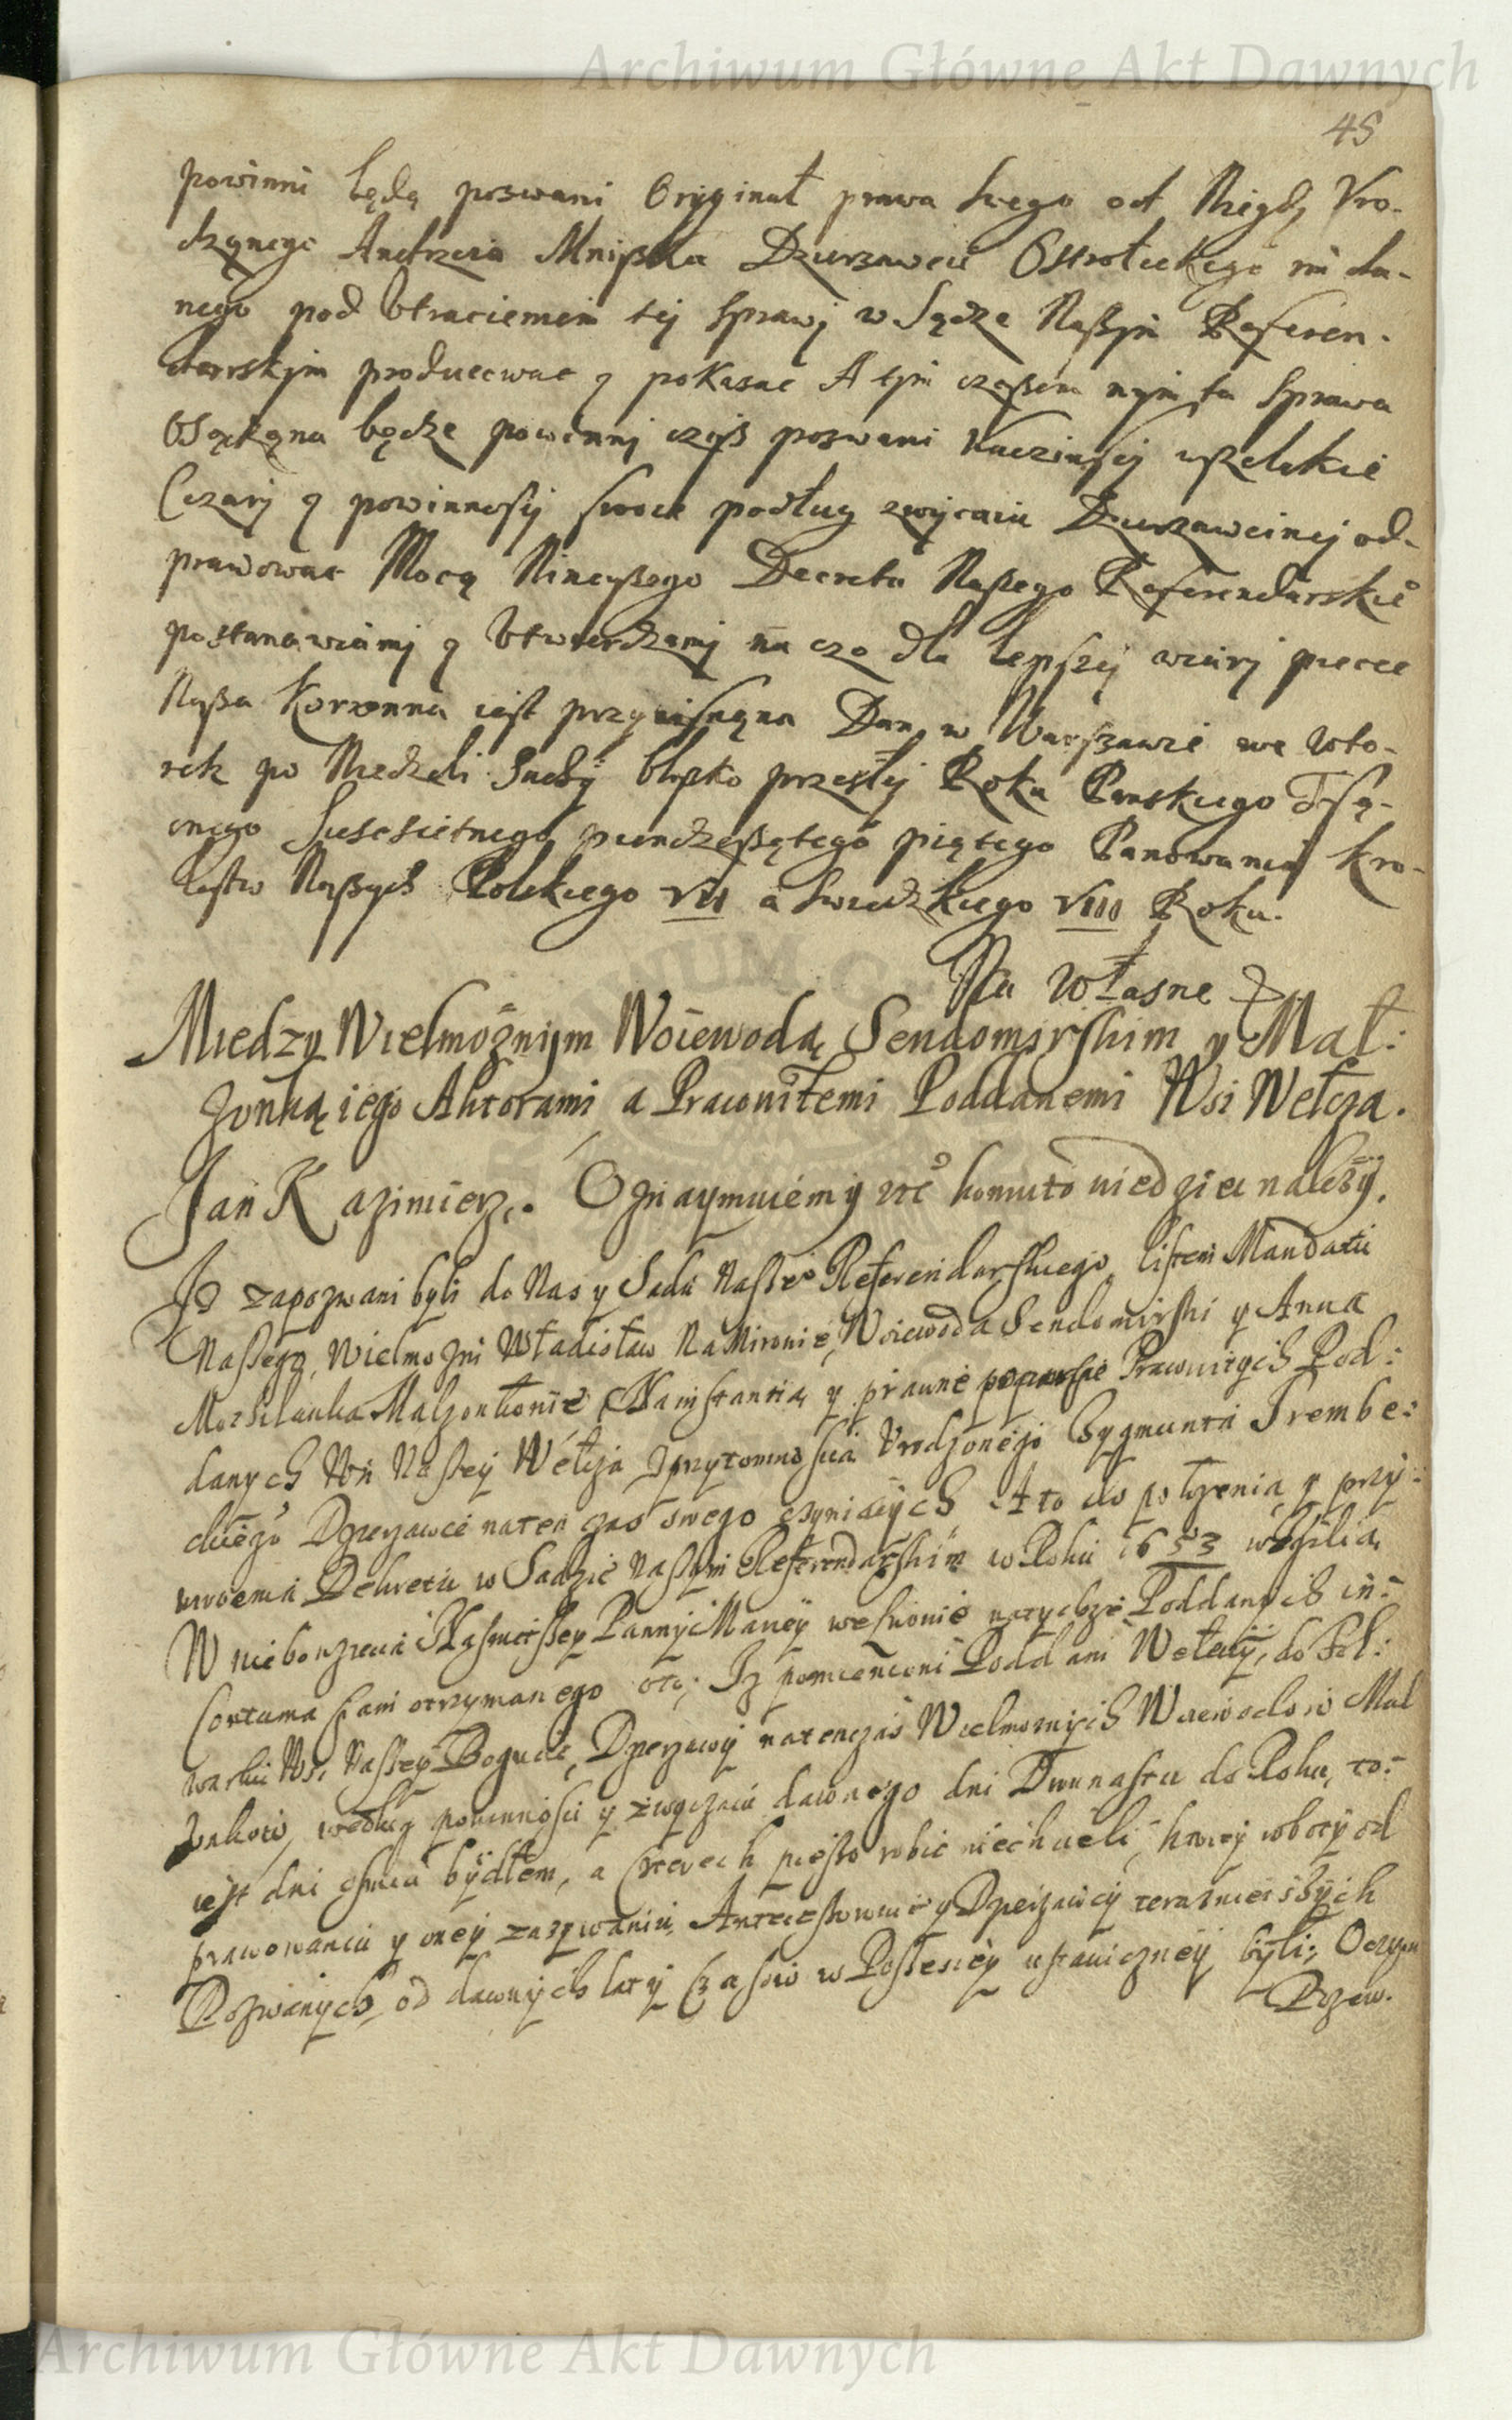 Archiwum Główne Akt Dawnych
45
powinni będą pozwani Oryginał prawa swego od Niegdy Vro-
dzonego Andrzeia Mniszka Dzierzawcę Ostrołeckiego im da-
nego pod Vtraceniem tej sprawy w Sądze Naszym Referen-
darskim producowac y pokazac A tym czasem nym ta sprawa
Osądzona będze powinny czysz pozwani wszelakie
Czarj y powinnosy swoie podług zwyczaiu Dzierzawcinej od-
prawowac Mocą Ninieyszego Decretu Naszego Referendarskie
postanawiamj y Vtwierdzamj na czo dla lepszej wiarj piecec
Nasza Koronna iest przycisnąna Dan w Warszawie we wto-
rek po Niedzeli Suchy blysko przeszłej Roku Panskiego Tysą-
cnego Szescsetnego piendzesątego piątego Panowania Kro-
lestw Naszych Polskiego VII a Swedzkiego VIII Roku.
Na Własne
Miedzy Wielmożnym Woiewodą Sendomirskim y Mał:
żonką iego Aktorami a Pracowitemi Poddanemi Wsi Wełcza.
Jan Kazimierz. Oznaymuiemy komu to wiedziec nalezy.
Iz zapozwani byli do Nas y Sadu Nasze Referendarskiego listem Mandatu
Naszego, Wielmozni Władisław Na Mironie, Woiewoda Sendomirski y Anna
Małzonkowie Na instantią y prawne poparcie Prawowitych Pod:
danych Wsi Naszey Wełcza z przytomnoscia Vrodzonego Zygmunta Trembe:
ckiego Dzerzawce naten czas swego czyniących A to do połozenia y przy:
wrocenia Dekretu w Sadzie Naszym Referendarskim w Roku 1653 w Wigilia
W niebowziecia Naswietszey Panny Mariey wesnionie natychze Poddanych in=
Contumatiam otrzymanego oto; Iz pomienieni Poddani Wełeccy, do Fol:
warku Wsi Naszey Bogucic, Dzerzawy natenczas Wielmoznych Woiewodow Mał
zonkow, według powinnosci y zwyczaiu dawnego dni Dwunastu do Roku, to=
iest dni osmiu bydłem, a Czterech pieszo robic niechcieli, ktorey roboty od
prawowaniu y oney zazywaniu, Antecessorowie y Dzerzawcy teraznieiszych
Pozwanych, od dawnych laty Czasow w Possesiey ustawiczney byli; Oczym
Przew.
Archiwum Główne Akt Dawnych